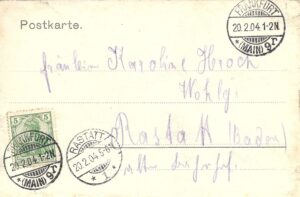 Postkarte.
FRANKFURT
20.2.04.1-2N.
*(MAIN) 9r
fräulein Karoline Hroch
Wohlg.
5 5
FRANKFURT
20.2.04.1-2N.
*(MAIN) 9r
RASTATT
20.2.04.5-6N
* 1. *
Rastatt (Baden)
alter Bahnhof.